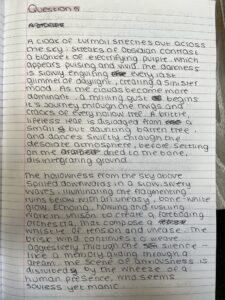 Question 5
A cloak of turmoil stretches out across
the sky: streaks of obsidian contrast
a blanket of electrifying purple, which
appears pulsing and vivid. The darkness
is slowly engulfing every last
glimmer of daylight, creating a sinister
mood. As the clouds become more
dominant, a chilling gust begins
it's journey through the twigs and
cracks of every hollow tree. A brittle,
lifeless leaf is dislodged from a
small but daunting barren tree,
and dances swiftly through the
desolate atmosphere, before settling
on the dried to the bone,
disintegrating ground.
The hollowness from the sky above
spilled downwards in a slow, eery
waves, illuminating the fragmenting
ruins below with an uneasy, bone-white
glow. Echoing, howling and rustling
work in unison to create a foreboding
orchestra, that compose a
whistle of tension and unease. The
brisk wind continues to weave
aggressively through the silence -
like a memory gliding through a
dream. The scene of ominousness is
disturbed by the wheeze of a
human presence, who seems
souless yet manic.